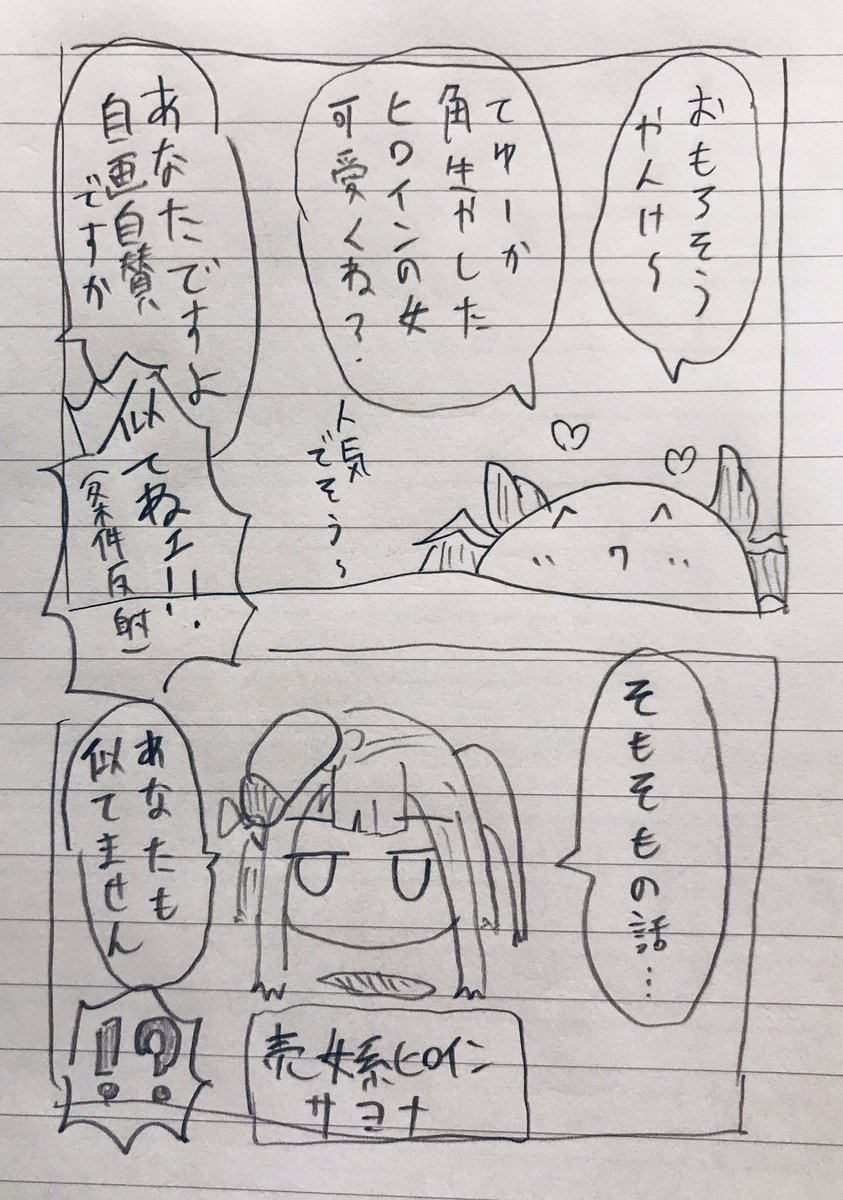 おもろそう
やんけ～
てゆーか
角生やした
ヒロインの女
可愛くね？
人気
でそう～
あなたですよ
自画自賛
ですか
似てねェー!!
(条件反射)
そもそもの話…
売女系ヒロイン
サヨナ
あなたも
似てません
!?